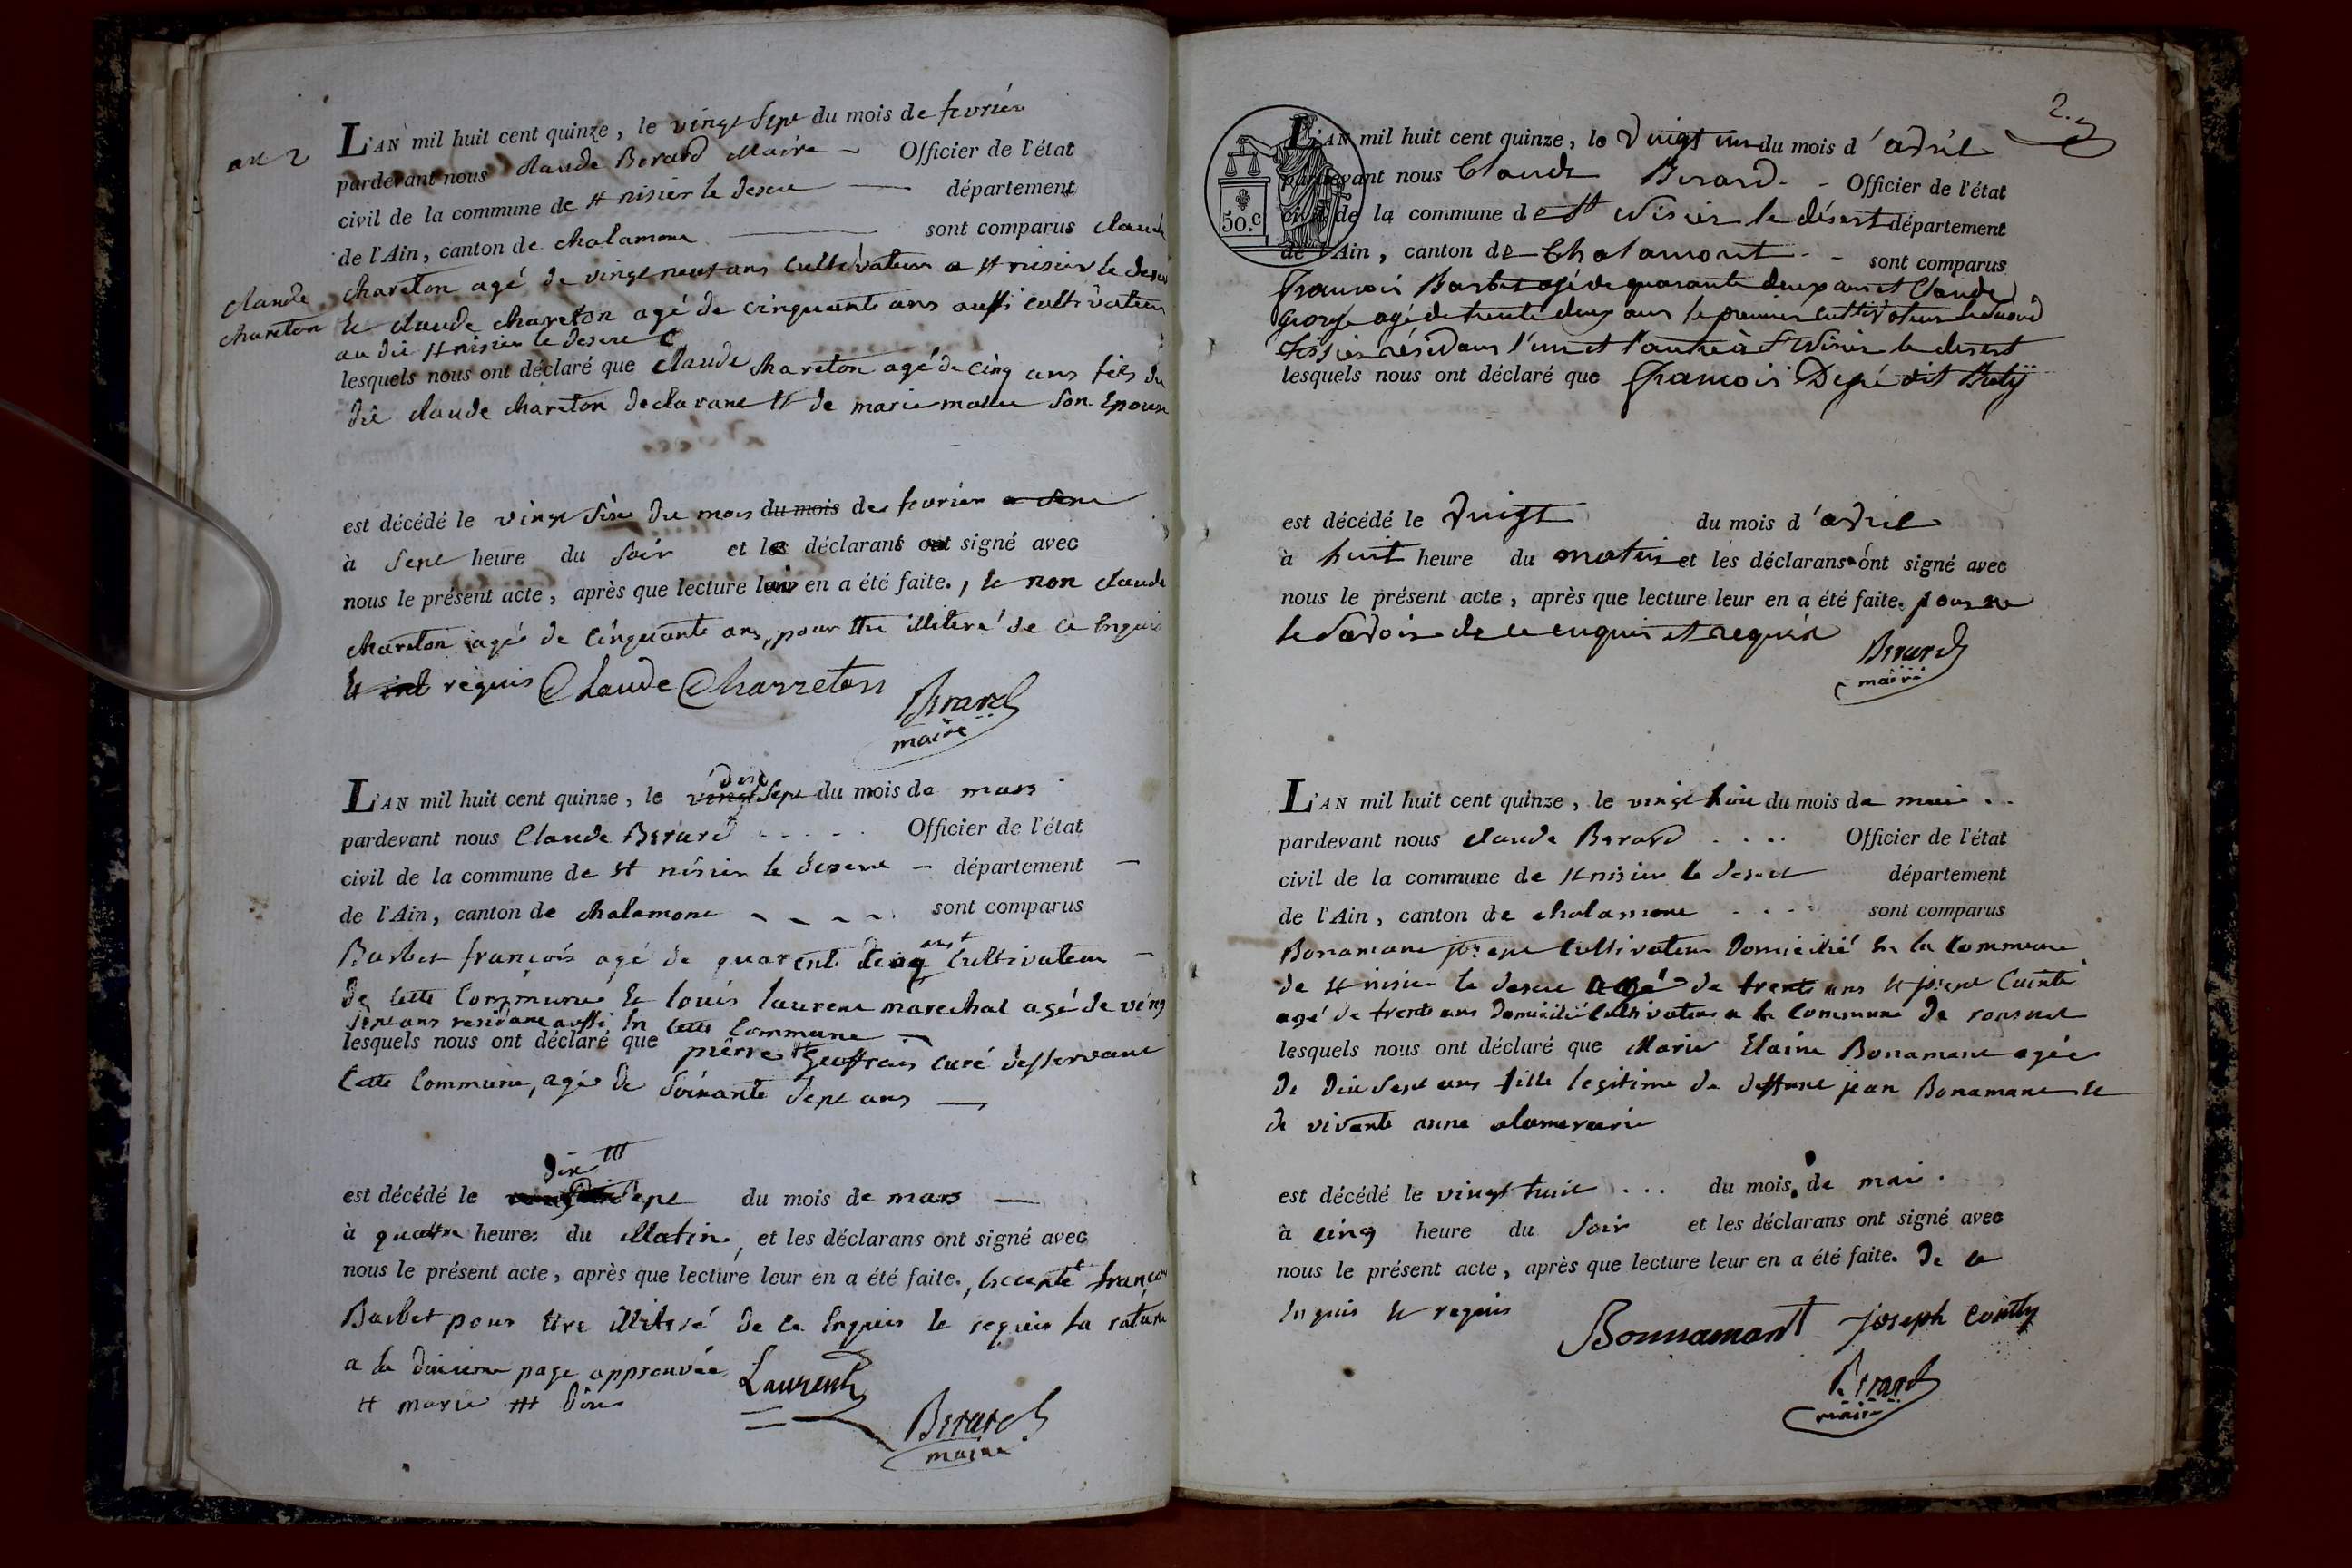 art 2
L'AN mil huit cent quinze, le vingt Sept du mois de fevrier
pardevant nous Claude Berard Maire — Officier de l'état
civil de la commune de St nisier le desert — département
de l'Ain, canton de chalamont — sont comparus claude
claude chareton
chareton agé de vingt neuf ans cultivateur a St nisier le desert
et claude chareton agé de cinquante ans aussi cultivateur
au dit St nisier le desert
lesquels nous ont déclaré que claude chareton agé de cinq ans fils du
dit claude chareton declarant et de marie son Epouse
est décédé le vingt Six du mois du mois de fevrier a
à Sept heure du Soir et les déclarans ont signé avec
nous le présent acte, après que lecture leur en a été faite., et non claude
chareton agé de cinquante ans, pour être illiteré de ce Enquis
et requis Claude Charreton
Berard
maire
L'AN mil huit cent quinze, le vingt dix Sept du mois de mars
pardevant nous Claude Berard Officier de l'état
civil de la commune de St nisier le desert — département —
de l'Ain, canton de chalamont sont comparus
Barbet françois agé de quarente cinq ans Cultivateur —
De cette Commune et louis laurent marechal agé de vingt
Sept ans residant aussi En cette Commune —
lesquels nous ont déclaré que pierre # Geoffrais curé desservant
Cette Commune, agé de Soixante Sept ans —
dix ###
est décédé le Sept du mois de mars —
à quattre heures du Matin, et les déclarans ont signé avec
nous le présent acte, après que lecture leur en a été faite., Excepté françois
Barbet pour être illiteré de ce Enquis et requis la rature
a la page approuvée
# marie ### dix
Laurent
Berard
maire
2.
50.c
L'AN mil huit cent quinze, le Vingt un du mois d'avril
pardevant nous Claude Berard - Officier de l'état
civil de la commune de St Nisier le désert département
de l'Ain, canton de Chalamont - sont comparus
François Barbet agé de quarante deux ans et Claude
George agé de trente deux ans le premier cultivateur le second
tissier résidans l'un et l'autre à St Nisier le desert
lesquels nous ont déclaré que François dit
est décédé le Vingt du mois d'avril
à huit heure du matin et les déclarans ont signé avec
nous le présent acte, après que lecture leur en a été faite. pour ne
le Savoir de ce enquis et requis
Berard
maire
L'AN mil huit cent quinze, le vingt huit du mois de mai
pardevant nous claude Berard Officier de l'état
civil de la commune de St nisier le desert département
de l'Ain, canton de chalamont sont comparus
Bonamant joseph Cultivateur Domicilié En la Commune
de St nisier le desert agé de trente ans et joseph
agé de trente ans Domicilié Cultivateur a la Commune de
lesquels nous ont déclaré que Marie Bonamant agée
De dix Sept ans fille legitime de deffunt jean Bonamant et
de vivante anne
est décédé le vingt huit du mois de mai
à cinq heure du Soir et les déclarans ont signé avec
nous le présent acte, après que lecture leur en a été faite. de ce
Enquis et requis
Bonnamant joseph
Berard
maire